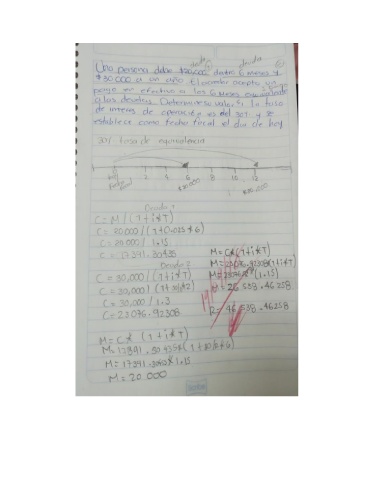 Una persona debe $20,000 dentro 6 meses y
$30 000 a un año. El acreedor acepta un
pago en efectivo a los 6 meses equivalente
a las deudas. Determine su valor si la tasa
de interes de operación es del 30% y se
establece como fecha focal el dia de hoy
30% tasa de equivalencia
hoy 6 8 10 12
Fecha focal $20,000
Deuda 1
C = M / (1+i*T)
C = 20,000 / (1+0.025*6)
C = 20,000 / 1.15
C = 17391.30435
Deuda 2
C = 30,000 / (1+i*T)
C = 30,000 /
C = 30,000 / 1.3
C = 23076.92308
M = C* (1+i*T)
M = 23076.92308
M = (1.15)
M = 26 538.46258
R = 46 538.46258
M = C* (1+i*T)
M = 17391.30435*
M = 17391. *1.15
M = 20 000